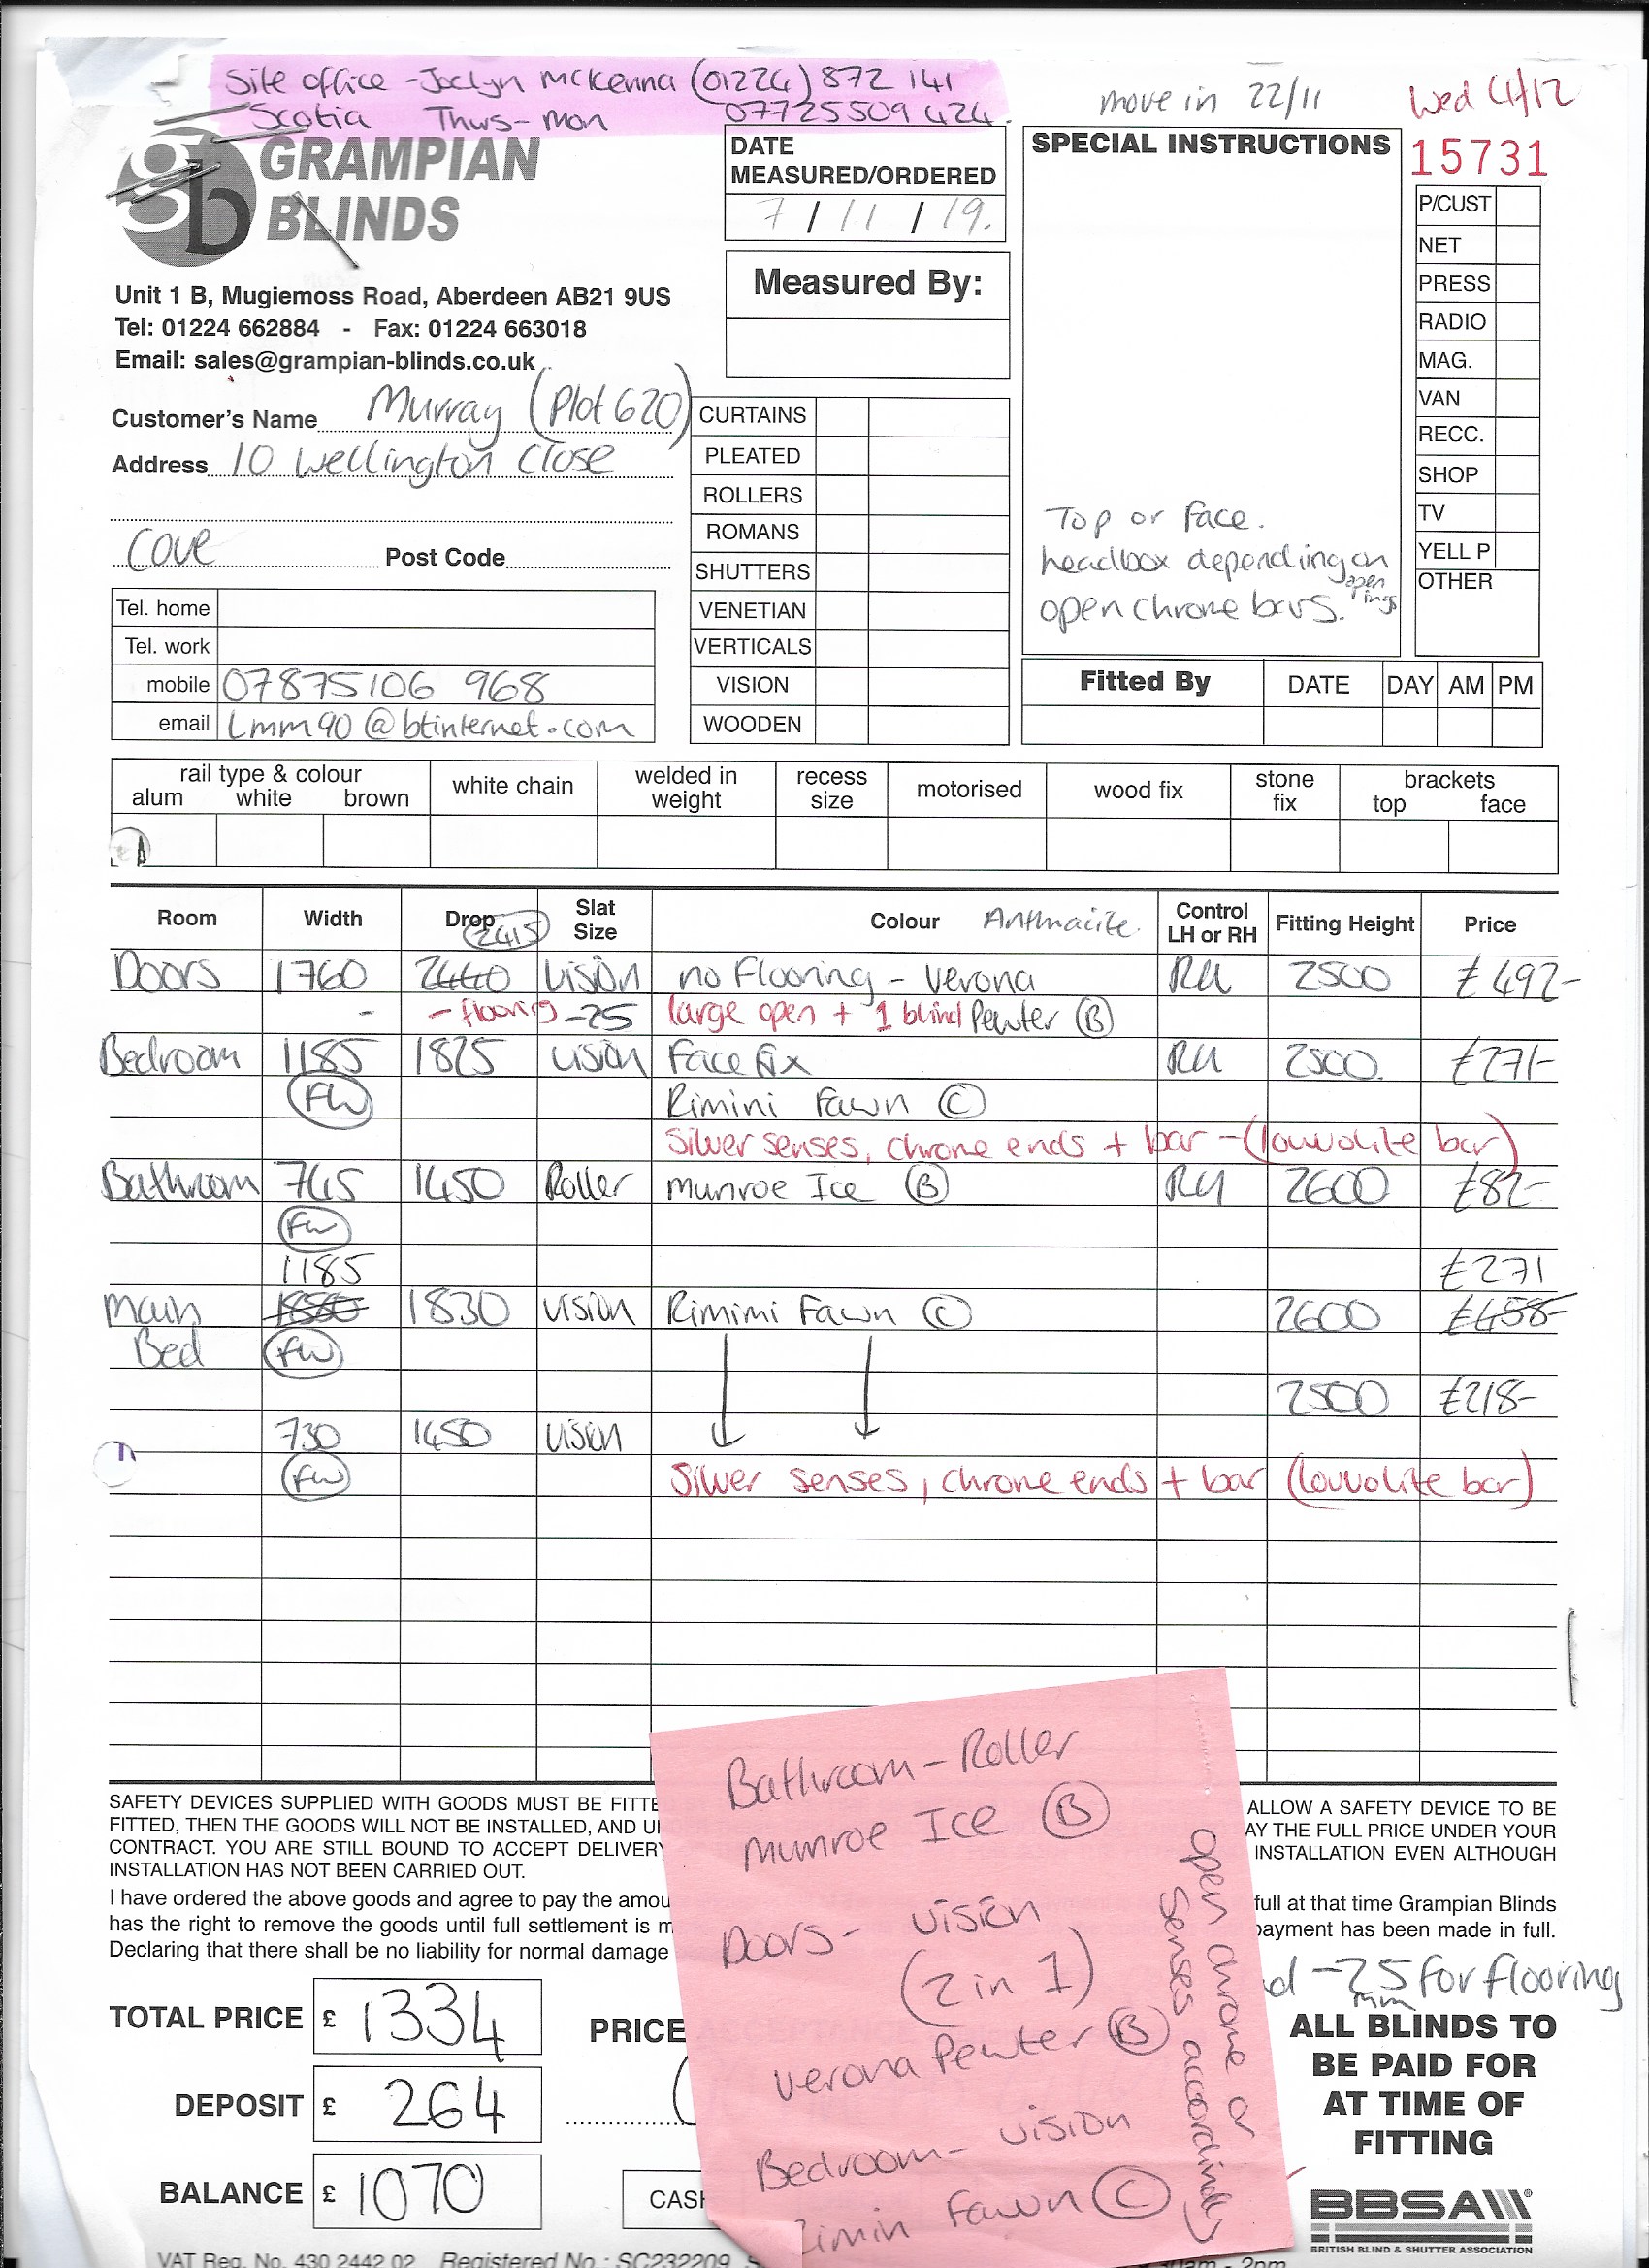 Site office - Joclyn McKenna (01224) 872 141
Scotia Thurs-Mon 07725509 424.
move in 22/11
Wed 4/12
GRAMPIAN
BLINDS
gb
Unit 1 B, Mugiemoss Road, Aberdeen AB21 9US
Tel: 01224 662884 - Fax: 01224 663018
Email: sales@grampian-blinds.co.uk
DATE
MEASURED/ORDERED
7 / 11 / 19.
Measured By:
SPECIAL INSTRUCTIONS
Top or Face.
headbox depending on
open chrome bars. openings
15731
P/CUST
NET
PRESS
RADIO
MAG.
VAN
RECC.
SHOP
TV
YELL P
OTHER
Customer's Name Murray (Plot 620)
Address 10 Wellington Close
Cove Post Code
Tel. home
Tel. work
mobile 07875106 968
email Lmm90@btinternet.com
CURTAINS
PLEATED
ROLLERS
ROMANS
SHUTTERS
VENETIAN
VERTICALS
VISION
WOODEN
Fitted By DATE DAY AM PM
rail type & colour
alum white brown
white chain
welded in
weight
recess
size
motorised
wood fix
stone
fix
brackets
top face
Room Width Drop Slat Size Colour Anthracite. Control LH or RH Fitting Height Price
2415
Doors 1760 2440 Vision no Flooring - Verona RH 2500 £492-
- - flooring -25 large open + 1 blind Pewter (B)
Bedroom 1185 1825 Vision Face fix RH 2500. £271-
FW Rimini Fawn (C)
Silver senses, chrome ends + bar - (louvolite bar)
Bathroom 745 1450 Roller Munroe Ice (B) RH 2600 £82-
FW
1185 £271
Main 1830 Vision Rimimi Fawn (C) 2600 £458-
Bed FW
2500 £218-
730 1450 Vision
FW Silver senses, chrome ends + bar (louvolite bar)
SAFETY DEVICES SUPPLIED WITH GOODS MUST BE FITTE ALLOW A SAFETY DEVICE TO BE
FITTED, THEN THE GOODS WILL NOT BE INSTALLED, AND U AY THE FULL PRICE UNDER YOUR
CONTRACT. YOU ARE STILL BOUND TO ACCEPT DELIVERY INSTALLATION EVEN ALTHOUGH
INSTALLATION HAS NOT BEEN CARRIED OUT.
I have ordered the above goods and agree to pay the amou full at that time Grampian Blinds
has the right to remove the goods until full settlement is m payment has been made in full.
Declaring that there shall be no liability for normal damage
Bathroom - Roller
Munroe Ice (B)
Doors - Vision
(2 in 1)
Verona Pewter (B)
Bedroom - Vision
Rimin Fawn (C)
open chrome or
Senses accordingly
d -25 for flooring
mm
TOTAL PRICE £ 1334
DEPOSIT £ 264
BALANCE £ 1070
PRICE
CASH
ALL BLINDS TO
BE PAID FOR
AT TIME OF
FITTING
BBSA
BRITISH BLIND & SHUTTER ASSOCIATION
VAT Reg. No. 430 2442 02 Registered No.: SC232209
30am - 2pm